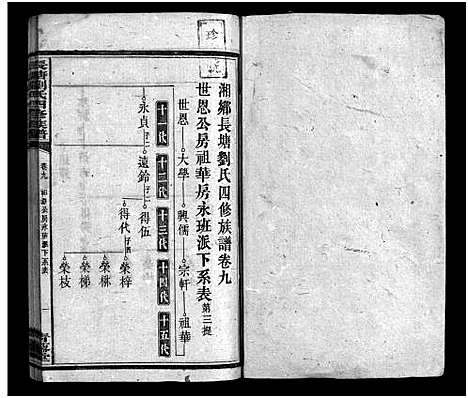 珍
湘鄉長塘劉氏四修族譜卷九
世恩公房祖華房永班派下系表 第三提
世恩 大學 興儒 宗軒 祖華
十一代 十二代 十三代 十四代 十五代
永貞 遠鈴 得伍
得代 榮梓
榮梯
榮梛
榮枝
長塘劉氏四修族譜
卷九
一